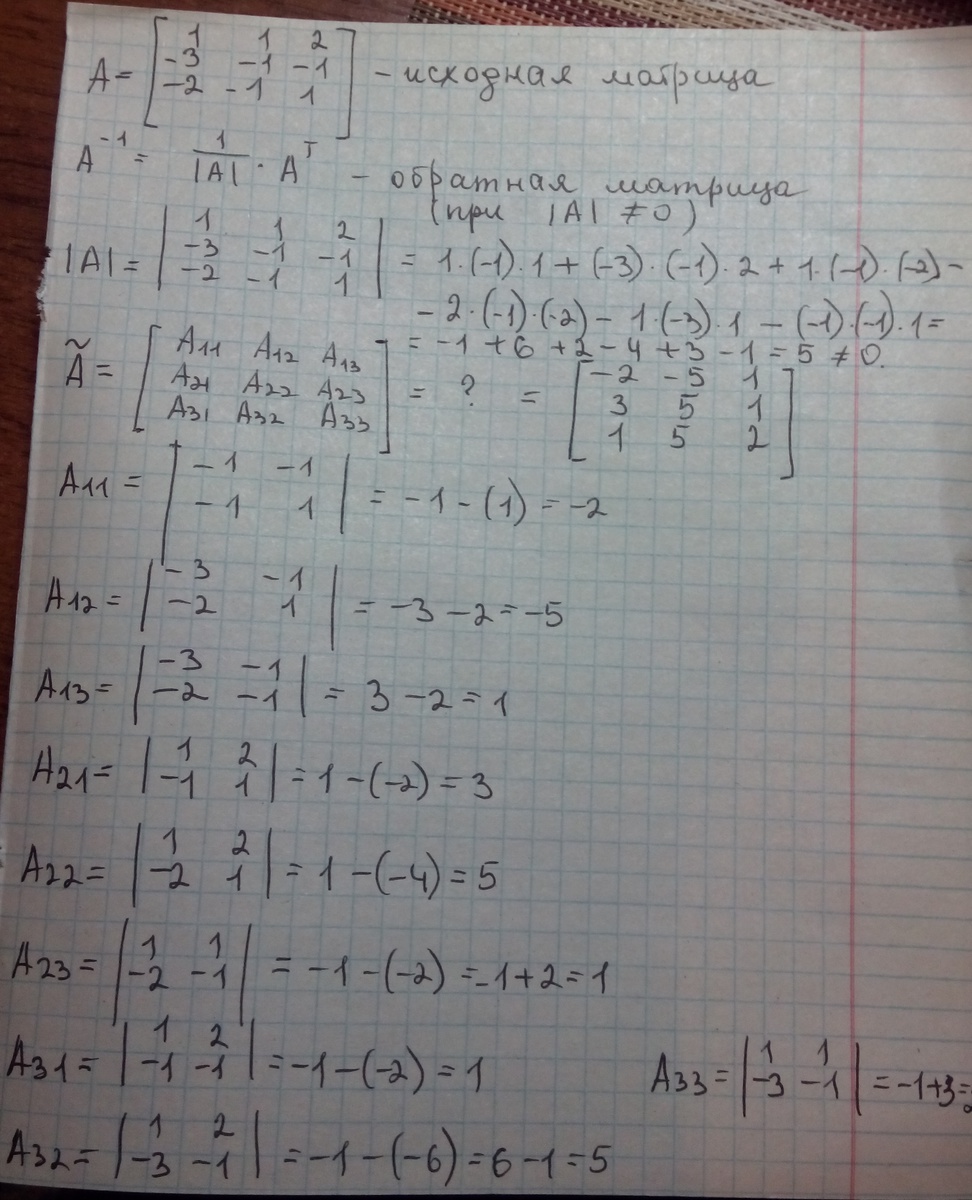 A = [ 1 1 2
-3 -1 -1
-2 -1 1 ] - исходная матрица
A⁻¹ = 1/|A| · Aᵀ - обратная матрица
(при |A| ≠ 0)
|A| = | 1 1 2
-3 -1 -1
-2 -1 1 | = 1·(-1)·1 + (-3)·(-1)·2 + 1·(-1)·(-2) -
- 2·(-1)·(-2) - 1·(-3)·1 - (-1)·(-1)·1 =
= -1 + 6 + 2 - 4 + 3 - 1 = 5 ≠ 0.
Ã = [ A11 A12 A13
A21 A22 A23
A31 A32 A33 ] = ? = [ -2 -5 1
3 5 1
1 5 2 ]
A11 = | -1 -1
-1 1 | = -1 - (1) = -2
A12 = | -3 -1
-2 1 | = -3 - 2 = -5
A13 = | -3 -1
-2 -1 | = 3 - 2 = 1
A21 = | 1 2
-1 1 | = 1 - (-2) = 3
A22 = | 1 2
-2 1 | = 1 - (-4) = 5
A23 = | 1 1
-2 -1 | = -1 - (-2) = -1 + 2 = 1
A31 = | 1 2
-1 -1 | = -1 - (-2) = 1
A33 = | 1 1
-3 -1 | = -1 + 3 = 2
A32 = | 1 2
-3 -1 | = -1 - (-6) = 6 - 1 = 5